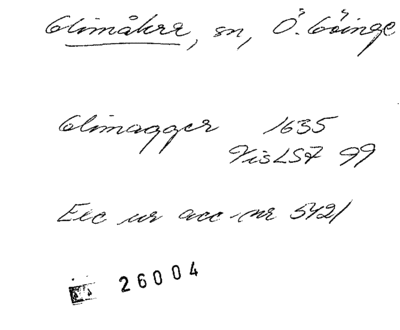 Glimåkra, sn, Ö. Göinge
Glimagger 1635
VisLSF 99
Exc ur acc nr 5421
26004